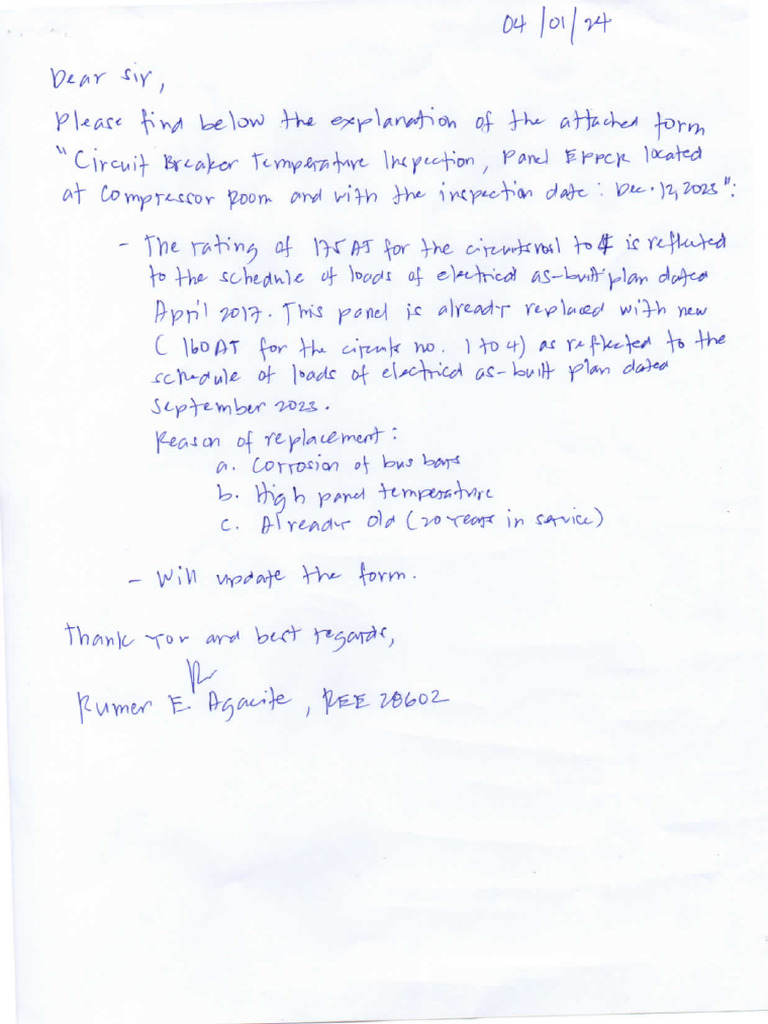 04/01/24
Dear Sir,
Please find below the explanation of the attached form
"Circuit Breaker Temperature Inspection, Panel EPPCR located
at Compressor Room and with the inspection date: Dec. 12, 2023":
- The rating of 175 AT for the circuits no. 1 to 4 is reflected
to the schedule of loads of electrical as-built plan dated
April 2017. This panel is already replaced with new
( 160 AT for the circuits no. 1 to 4) as reflected to the
schedule of loads of electrical as-built plan dated
September 2023.
Reason of replacement:
a. Corrosion of bus bars
b. High panel temperature
c. Already old (20 years in service)
- Will update the form.
Thank you and best regards,
Rumer E. Agacite, REE 28602